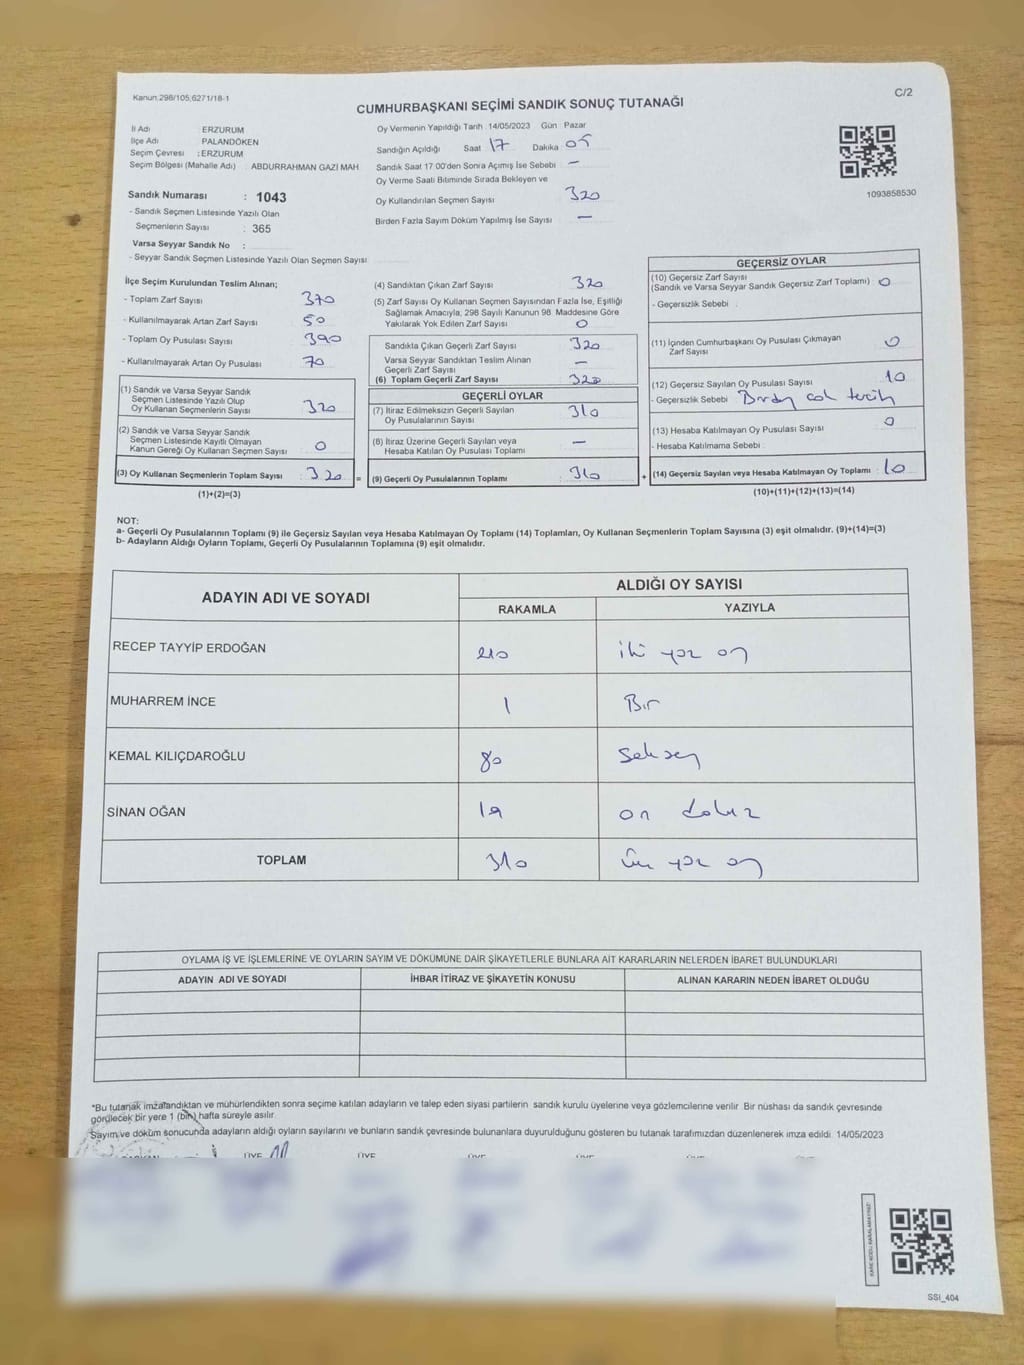 Kanun:298/105;6271/18-1
C/2
CUMHURBAŞKANI SEÇİMİ SANDIK SONUÇ TUTANAĞI
İl Adı : ERZURUM
İlçe Adı : PALANDÖKEN
Seçim Çevresi : ERZURUM
Seçim Bölgesi (Mahalle Adı) : ABDURRAHMAN GAZİ MAH
Sandık Numarası : 1043
- Sandık Seçmen Listesinde Yazılı Olan
Seçmenlerin Sayısı : 365
Varsa Seyyar Sandık No :
- Seyyar Sandık Seçmen Listesinde Yazılı Olan Seçmen Sayısı
Oy Vermenin Yapıldığı Tarih : 14/05/2023 Gün : Pazar
Sandığın Açıldığı Saat 17 Dakika 05
Sandık Saat 17:00'den Sonra Açımış İse Sebebi —
Oy Verme Saati Bitiminde Sırada Bekleyen ve
Oy Kullandırılan Seçmen Sayısı 320
Birden Fazla Sayım Döküm Yapılmış İse Sayısı —
1093858530
İlçe Seçim Kurulundan Teslim Alınan;
- Toplam Zarf Sayısı 370
- Kullanılmayarak Artan Zarf Sayısı 50
- Toplam Oy Pusulası Sayısı 390
- Kullanılmayarak Artan Oy Pusulası 70
(1) Sandık ve Varsa Seyyar Sandık
Seçmen Listesinde Yazılı Olup
Oy Kullanan Seçmenlerin Sayısı 320
(2) Sandık ve Varsa Seyyar Sandık
Seçmen Listesinde Kayıtlı Olmayan
Kanun Gereği Oy Kullanan Seçmen Sayısı : 0
(3) Oy Kullanan Seçmenlerin Toplam Sayısı : 320
(1)+(2)=(3)
(4) Sandıktan Çıkan Zarf Sayısı 320
(5) Zarf Sayısı Oy Kullanan Seçmen Sayısından Fazla İse, Eşitliği
Sağlamak Amacıyla, 298 Sayılı Kanunun 98. Maddesine Göre
Yakılarak Yok Edilen Zarf Sayısı 0
Sandıkta Çıkan Geçerli Zarf Sayısı 320
Varsa Seyyar Sandıktan Teslim Alınan
Geçerli Zarf Sayısı —
(6) Toplam Geçerli Zarf Sayısı 320
GEÇERLİ OYLAR
(7) İtiraz Edilmeksizin Geçerli Sayılan
Oy Pusulalarının Sayısı 310
(8) İtiraz Üzerine Geçerli Sayılan veya
Hesaba Katılan Oy Pusulası Toplamı —
= (9) Geçerli Oy Pusulalarının Toplamı : 310 +
GEÇERSİZ OYLAR
(10) Geçersiz Zarf Sayısı
(Sandık ve Varsa Seyyar Sandık Geçersiz Zarf Toplamı) : 0
- Geçersizlik Sebebi :
(11) İçinden Cumhurbaşkanı Oy Pusulası Çıkmayan
Zarf Sayısı 0
(12) Geçersiz Sayılan Oy Pusulası Sayısı 10
- Geçersizlik Sebebi : Birden çok tercih
(13) Hesaba Katılmayan Oy Pusulası Sayısı 0
- Hesaba Katılmama Sebebi :
(14) Geçersiz Sayılan veya Hesaba Katılmayan Oy Toplamı : 10
(10)+(11)+(12)+(13)=(14)
NOT:
a- Geçerli Oy Pusulalarının Toplamı (9) ile Geçersiz Sayılan veya Hesaba Katılmayan Oy Toplamı (14) Toplamları, Oy Kullanan Seçmenlerin Toplam Sayısına (3) eşit olmalıdır. (9)+(14)=(3)
b- Adayların Aldığı Oyların Toplamı, Geçerli Oy Pusulalarının Toplamına (9) eşit olmalıdır.
ADAYIN ADI VE SOYADI
ALDIĞI OY SAYISI
RAKAMLA YAZIYLA
RECEP TAYYİP ERDOĞAN 210 iki yüz on
MUHARREM İNCE 1 Bir
KEMAL KILIÇDAROĞLU 80 Seksen
SİNAN OĞAN 19 on dokuz
TOPLAM 310 üç yüz on
OYLAMA İŞ VE İŞLEMLERİNE VE OYLARIN SAYIM VE DÖKÜMÜNE DAİR ŞİKAYETLERLE BUNLARA AİT KARARLARIN NELERDEN İBARET BULUNDUKLARI
ADAYIN ADI VE SOYADI İHBAR İTİRAZ VE ŞİKAYETİN KONUSU ALINAN KARARIN NEDEN İBARET OLDUĞU
*Bu tutanak imzalandıktan ve mühürlendikten sonra seçime katılan adayların ve talep eden siyasi partilerin sandık kurulu üyelerine veya gözlemcilerine verilir. Bir nüshası da sandık çevresinde
görülecek bir yere 1 (bir) hafta süreyle asılır.
Sayım ve döküm sonucunda adayların aldığı oyların sayılarını ve bunların sandık çevresinde bulunanlara duyurulduğunu gösteren bu tutanak tarafımızdan düzenlenerek imza edildi. 14/05/2023
ÜYE ÜYE
KARE KODU KARALAMAYINIZ!
SSI_404